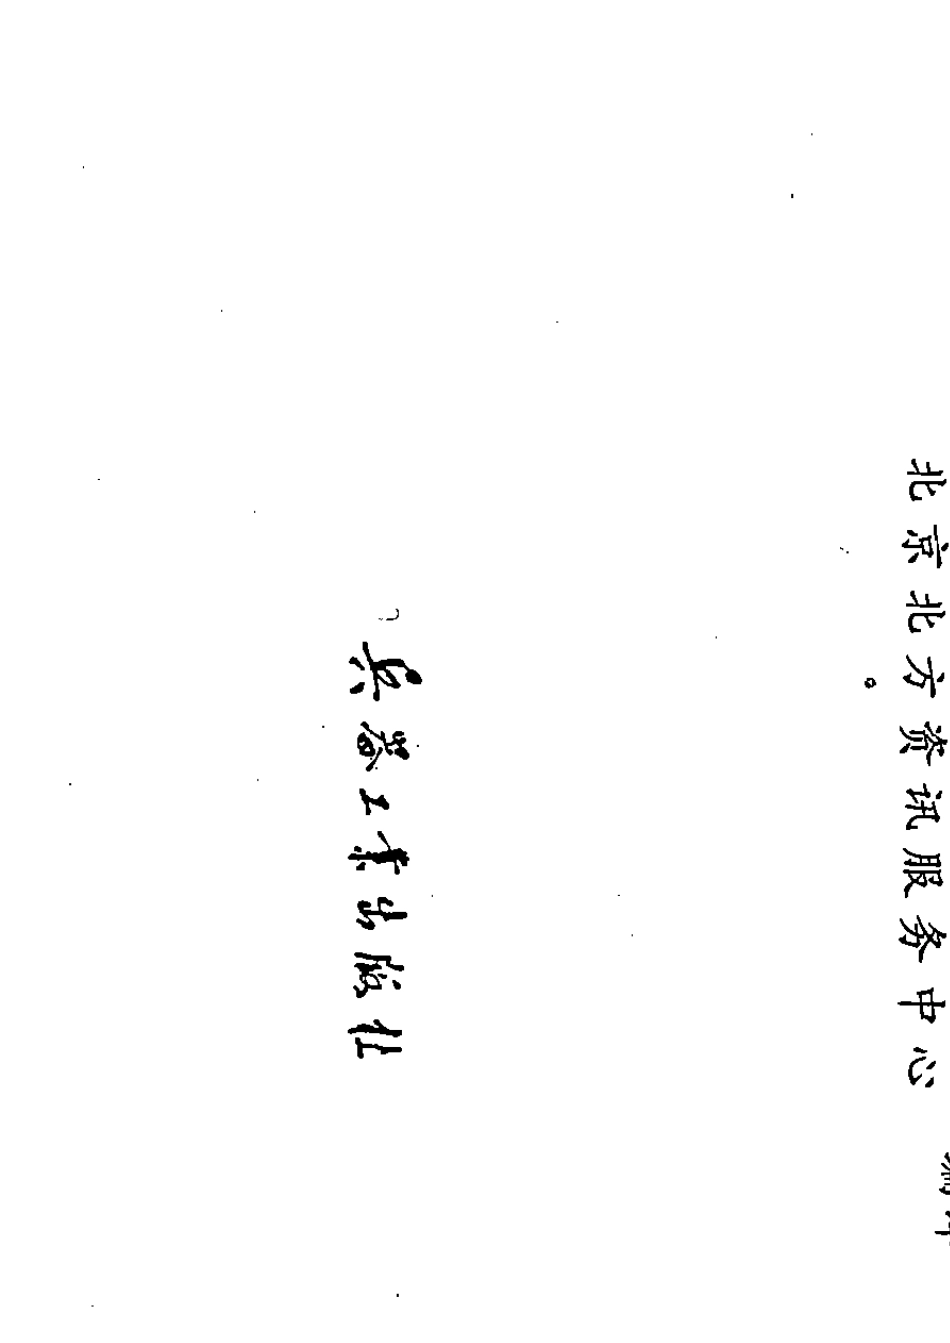 北京北方资讯服务中心
兵器工业出版社